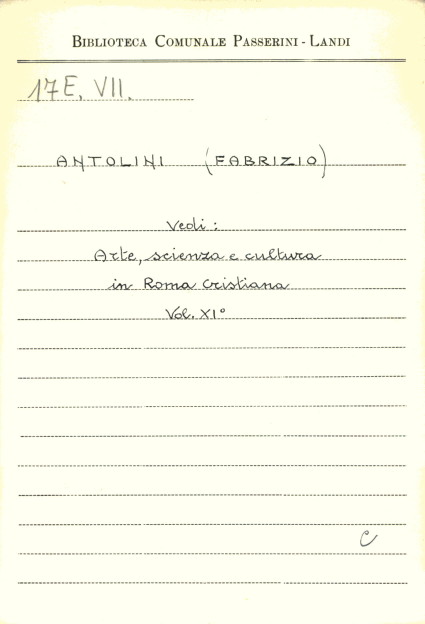 BIBLIOTECA COMUNALE PASSERINI - LANDI
17E. VII.
ANTOLINI (FABRIZIO)
Vedi:
Arte, scienza e cultura
in Roma Cristiana
Vol. XI°
C